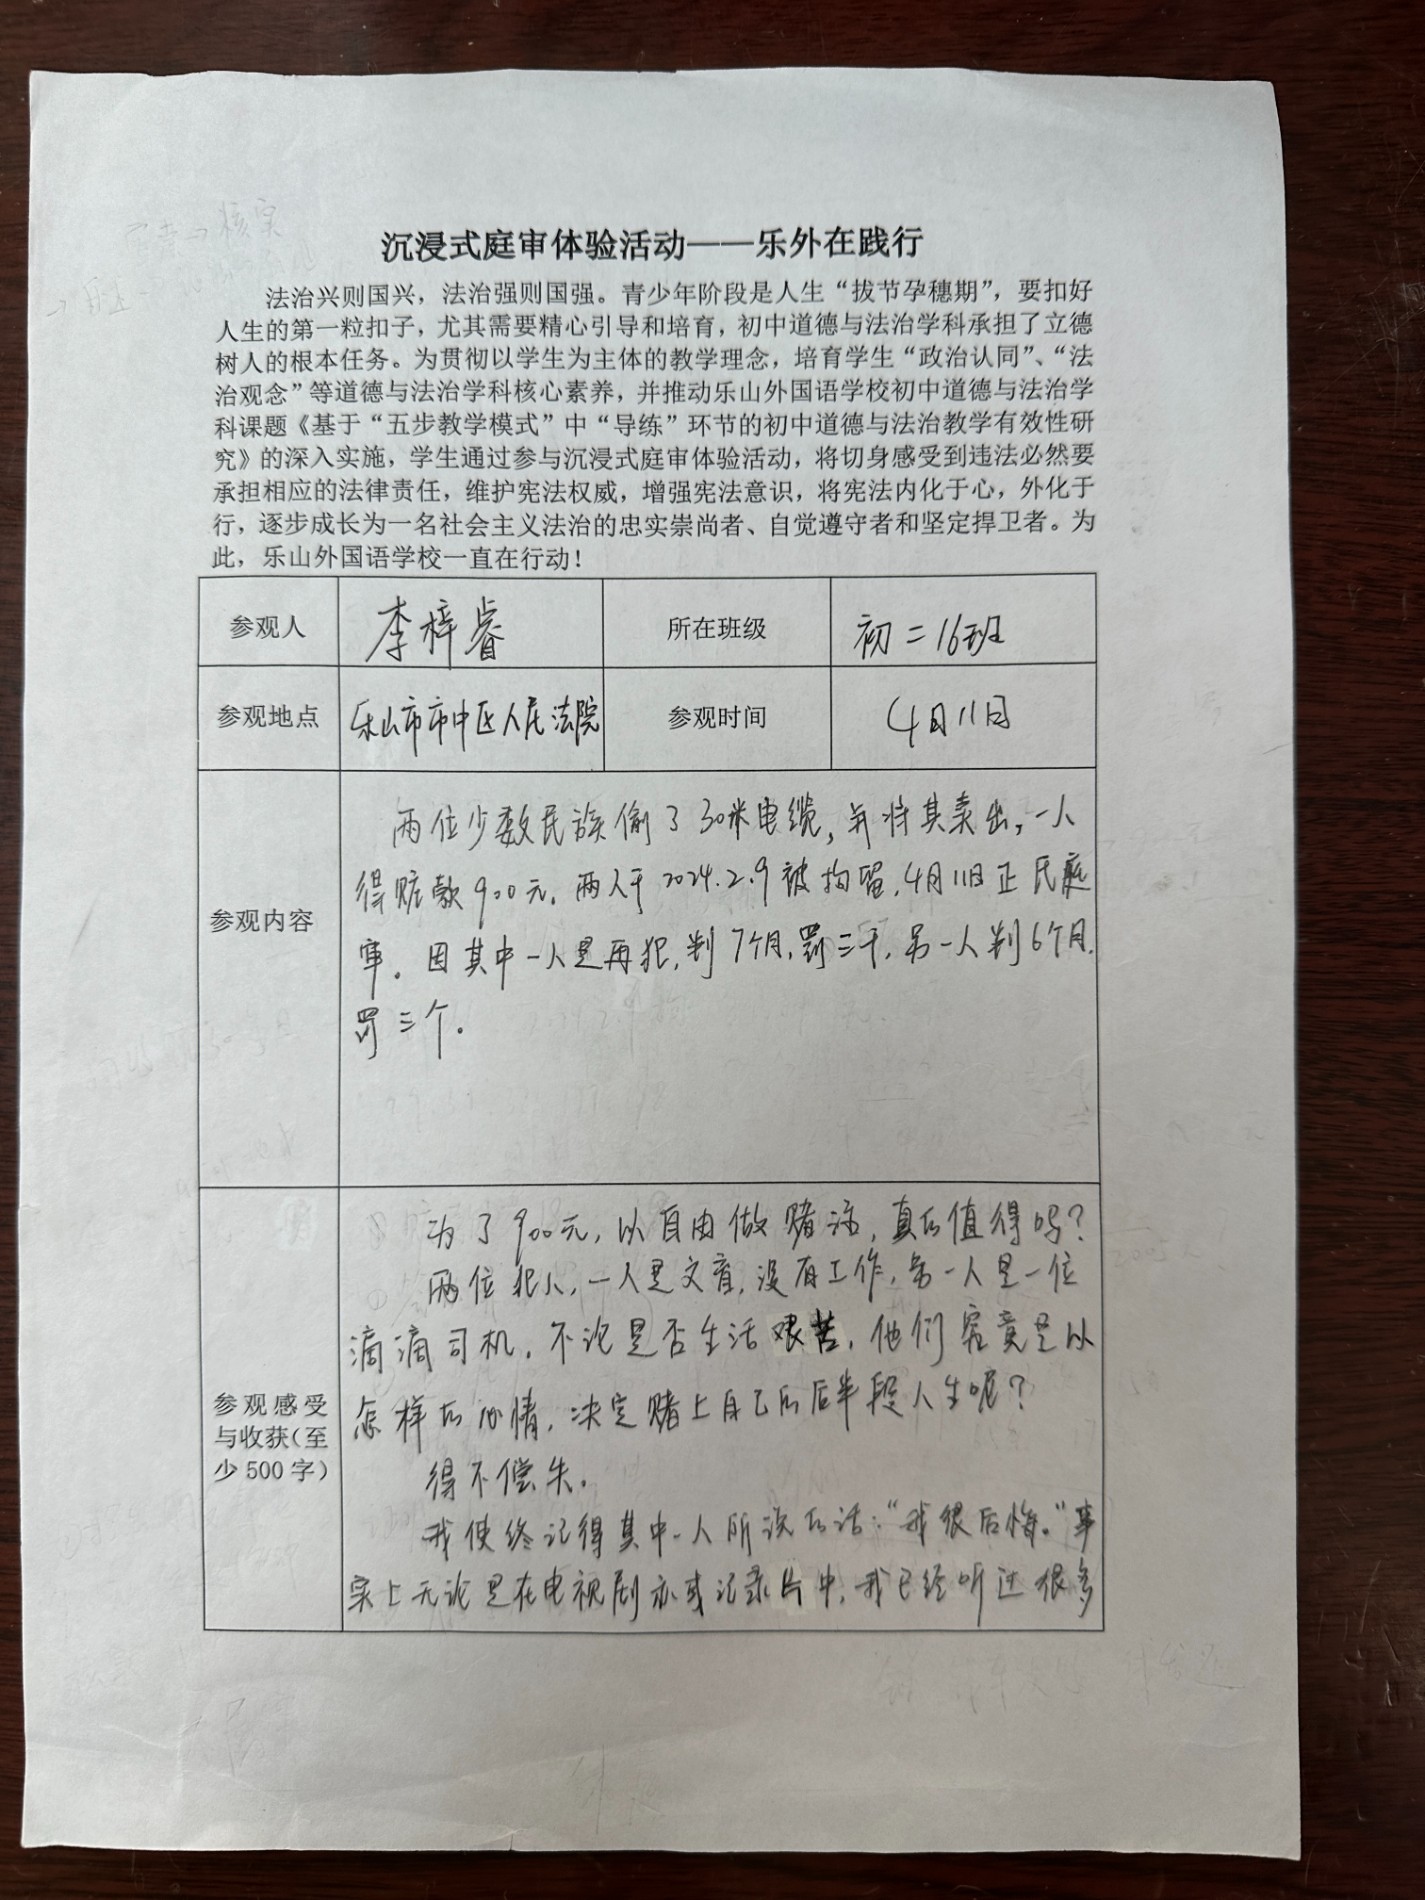 沉浸式庭审体验活动——乐外在践行
法治兴则国兴，法治强则国强。青少年阶段是人生“拔节孕穗期”，要扣好
人生的第一粒扣子，尤其需要精心引导和培育，初中道德与法治学科承担了立德
树人的根本任务。为贯彻以学生为主体的教学理念，培育学生“政治认同”、“法
治观念”等道德与法治学科核心素养，并推动乐山外国语学校初中道德与法治学
科课题《基于“五步教学模式”中“导练”环节的初中道德与法治教学有效性研
究》的深入实施，学生通过参与沉浸式庭审体验活动，将切身感受到违法必然要
承担相应的法律责任，维护宪法权威，增强宪法意识，将宪法内化于心，外化于
行，逐步成长为一名社会主义法治的忠实崇尚者、自觉遵守者和坚定捍卫者。为
此，乐山外国语学校一直在行动！
参观人 李梓睿 所在班级 初二16班
参观地点 乐山市市中区人民法院 参观时间 4月11日
参观内容
两位少数民族偷了30米电缆，并将其卖出，一人
得赃款900元。两人于2024.2.9被拘留，4月11日正民庭
审。因其中一人是再犯，判7个月，罚三千，另一人判6个月，
罚三个。
参观感受
与收获（至
少500字）
为了900元，以自由做赌注，真的值得吗？
两位犯人，一人是文盲，没有工作，另一人是一位
滴滴司机，不论是否生活艰苦，他们究竟是以
怎样的心情，决定赌上自己的后半段人生呢？
得不偿失。
我使终记得其中一人所说的话：“我很后悔。”事
实上无论是在电视剧亦或记录片中，我已经听过很多